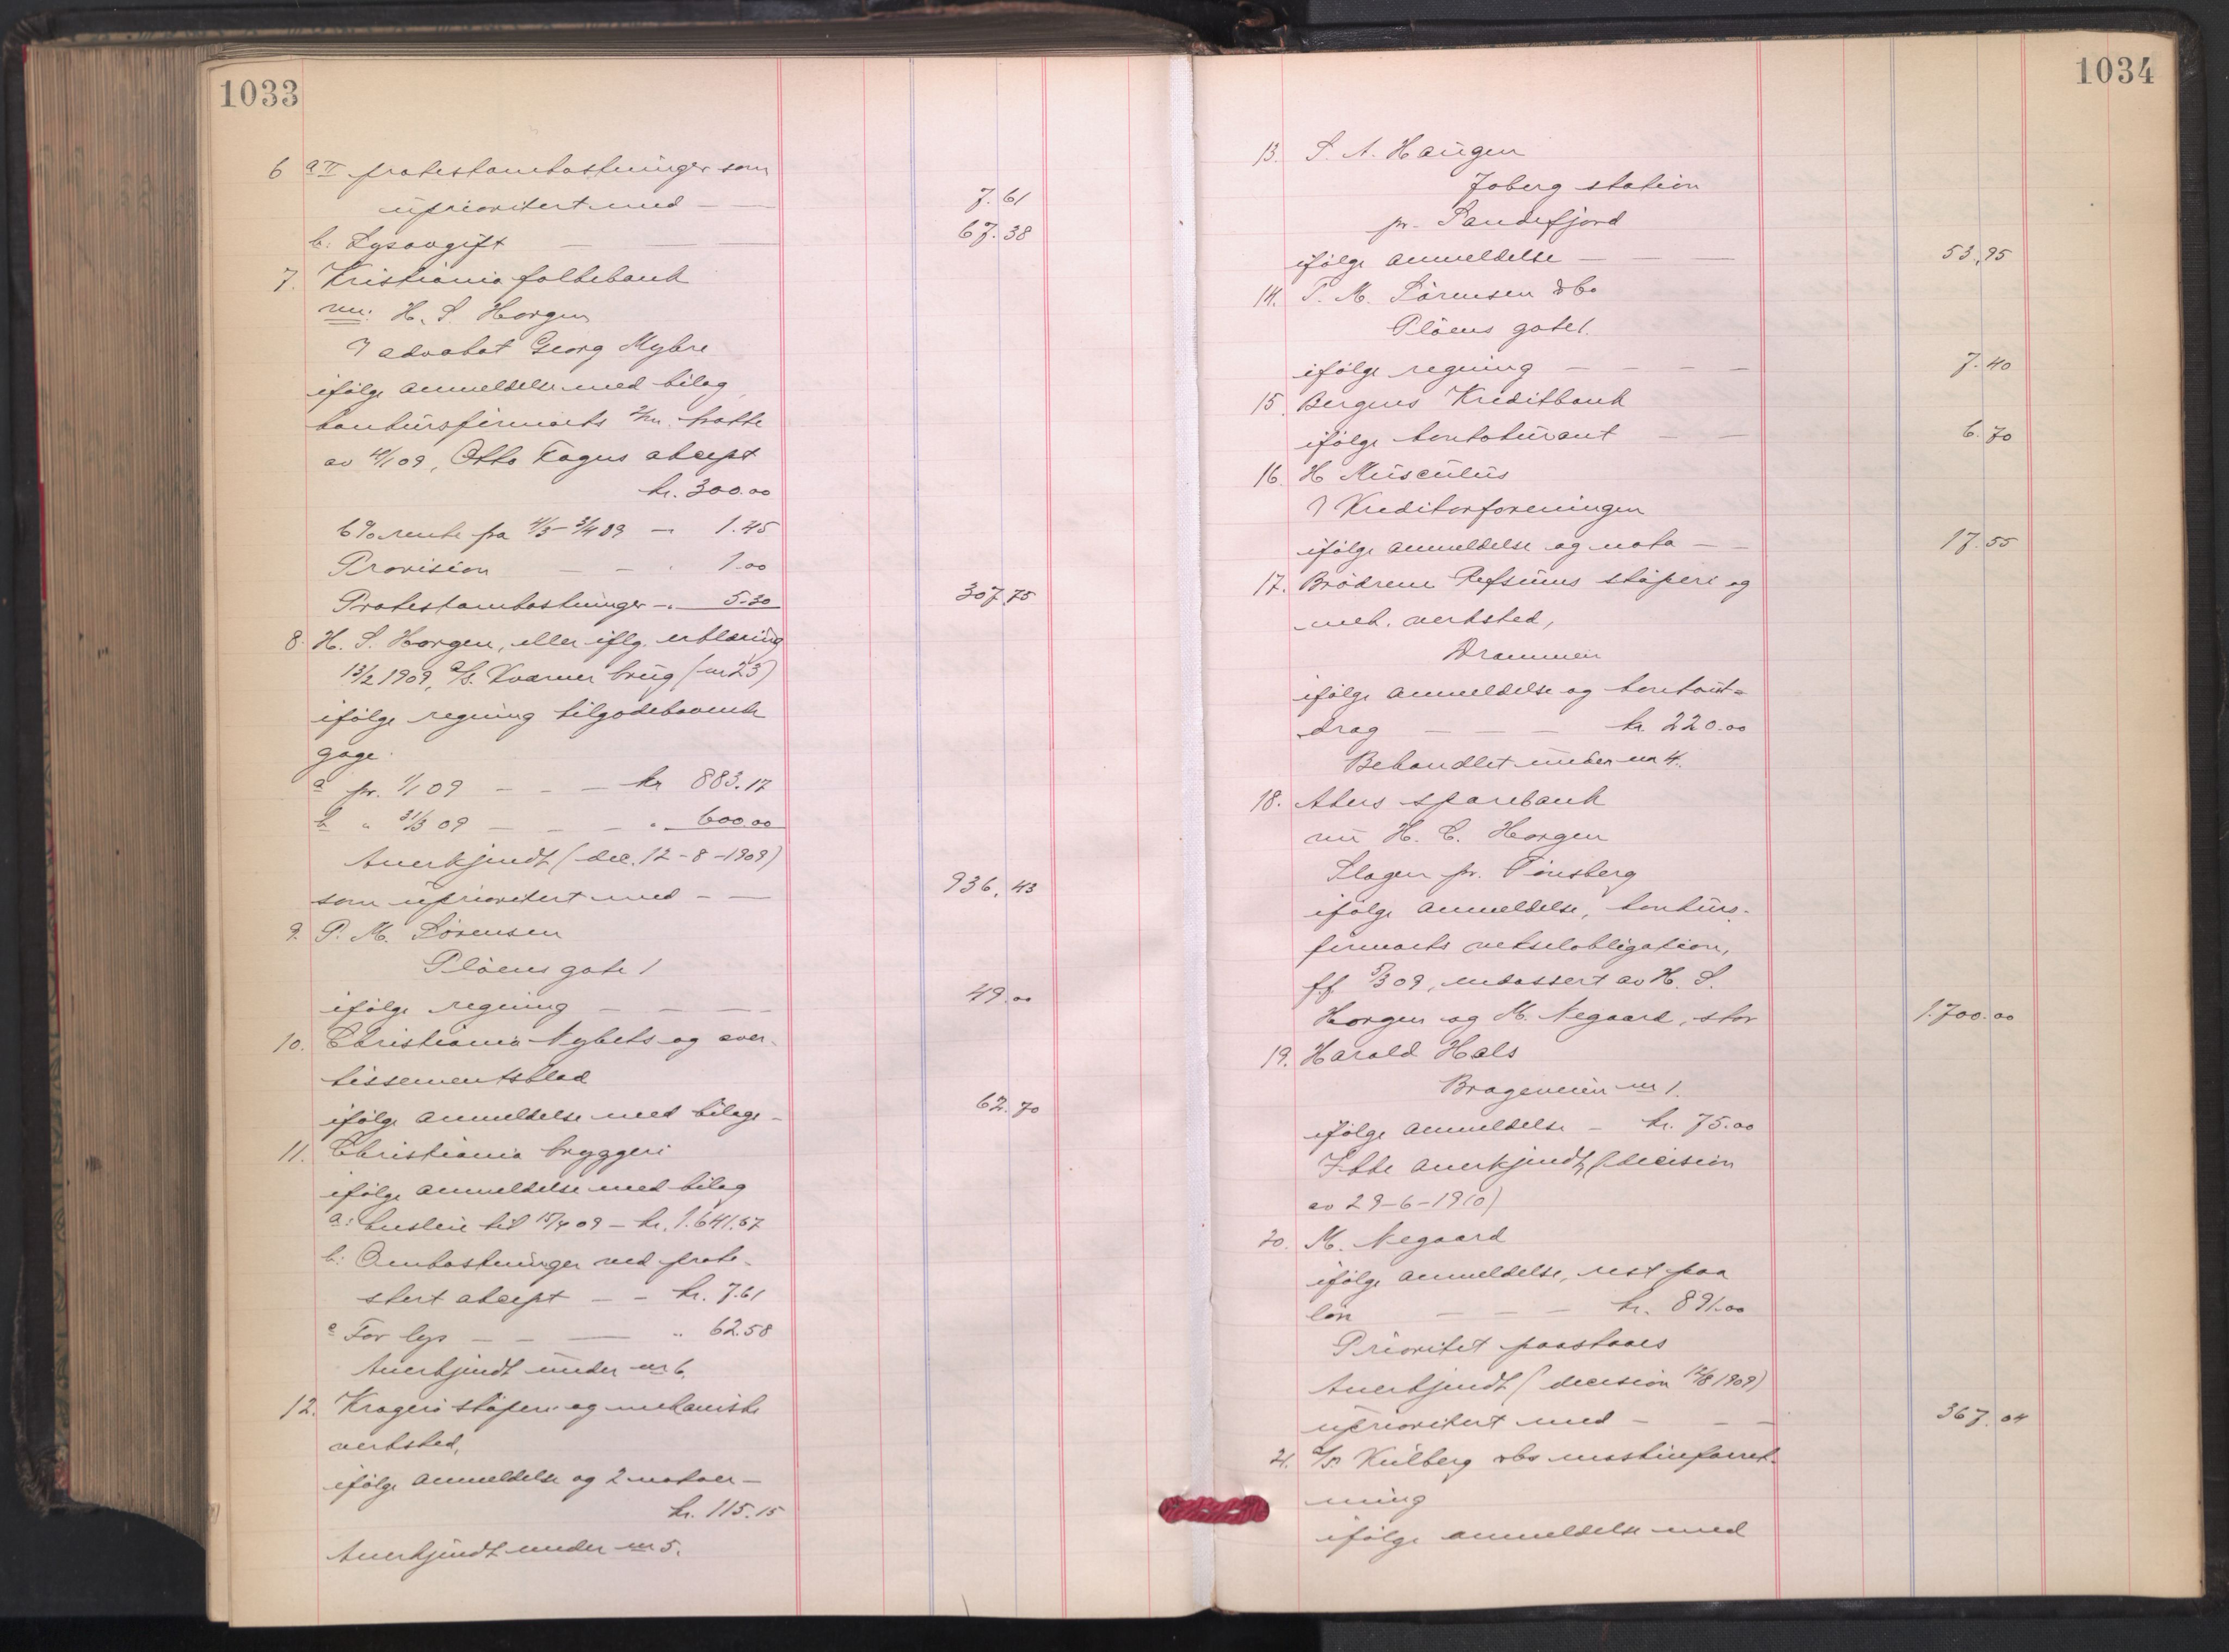 1033
6 a II protestomkostninger som
uprioritert med — 7.61
b: Lysavgift — 67.38
7. Kristiania folkebank
nu: H. S. Horgen
ɔ advokat Georg Myhre
ifølge anmeldelse med bilag,
konkursfirmaets tratte
av 09, Otto Fagus aksept
kr. 300.00
6 % rente fra 4/3 – 3/4 09 — 1.45
Provision — 1.00
Protestomkostninger — 5.30 307.75
8. H. S. Horgen, eller iflg. erklæring
13/2 1909, A/S. Kværner brug (nr 23)
ifølge regning tilgodehavende
gage.
a pr. 1/1 09 — kr 883.17
b " 31/3 09 — " 600.00
Anerkjendt (dec. 12-8-1909)
som uprioritert med — 936.43
9. P. M. Sörensen
Plöens gate 1
ifølge regning — 49.00
10. Christiania Nyhets og aver-
tissementsblad
ifølge anmeldelse med bilag — 62.70
11. Christiania bryggeri
ifølge anmeldelse med bilag
a: husleie til 15/4 09 – kr. 1.641.67
b: Omkostninger ved prote-
stert aksept — kr. 7.61
c For lys — " 62.58
Anerkjendt under nr 6.
12. Kragerö støperi og mekaniske
verksted,
ifølge anmeldelse og 2 notaer —
kr. 115.15
Anerkjendt under nr 5.
1034
13. S. A. Haugen
Joberg station
pr. Sandefjord
ifølge anmeldelse — 53.95
14. P. M. Sörensen & Co
Plöens gate 1.
ifølge regning — 7.40
15. Bergens Kreditbank
ifølge kontokurant — 6.70
16. H Musculus
ɔ Kreditorforeningen
ifølge anmeldelse og nota — 17.55
17. Brödrene Refsums støperi og
mek. verksted,
Drammen
ifølge anmeldelse og kontout-
drag — kr. 220.00
Behandlet under nr 4.
18. Akers sparebank
nu H. C. Horgen
Slagen pr. Tönsberg
ifølge anmeldelse, konkurs-
firmaets vekselobligation,
f.f. 5/3 09, endossert av H. S.
Horgen og M. Negaard, stor 1.700.00
19. Harald Hals
Brageveien nr 1.
ifølge anmeldelse — kr. 75.00
Ikke anerkjendt (decision
av 29-6-1910)
20. M. Negaard
ifølge anmeldelse, rest paa
løn — kr. 891.00
Prioritet paastaaes
Anerkjendt (decision 12/8 1909)
uprioritert med — 367.04
21. A/S. Kulberg & Co maskinforret-
ning
ifølge anmeldelse med